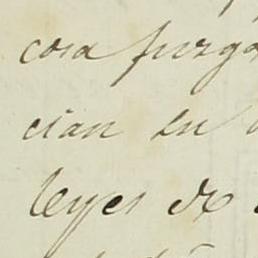 cosa juzga
cian en
leyes de